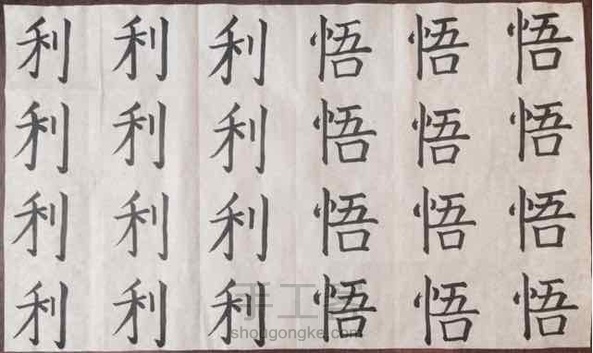 利利利悟悟悟
利利利悟悟悟
利利利悟悟悟
利利利悟悟悟
手工客
shougongke.com